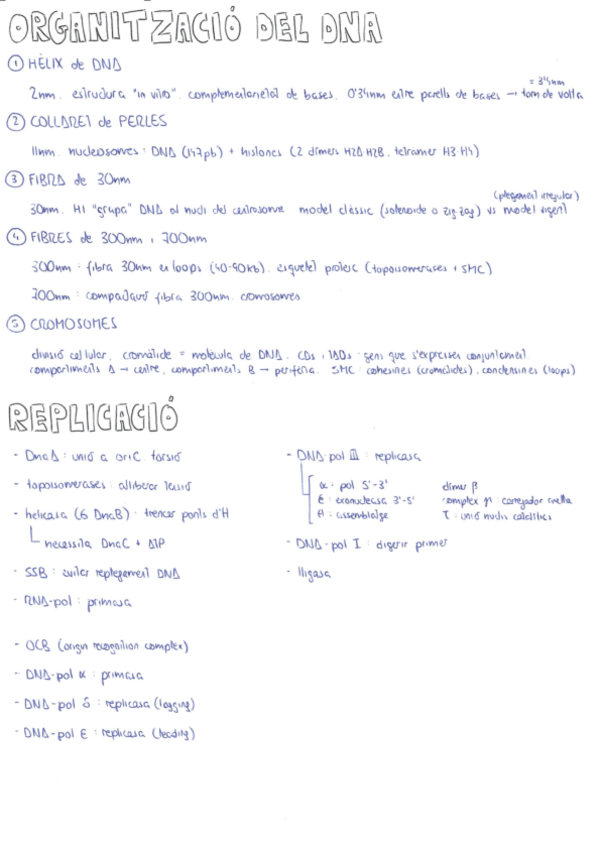 ORGANITZACIÓ DEL DNA
① HÈLIX de DNA
= 3'4nm
2nm. estructura "in vitro". complementarietat de bases. 0'34nm entre parells de bases → tom de volta
② COLLARET de PERLES
11nm. nucleosomes: DNA (147pb) + histones (2 dímers H2A H2B, tetràmer H3·H4)
③ FIBRA de 30nm
(plegament irregular)
30nm. H1 "grapa" DNA al nucli del centrosoma model clàssic (solenoide o zig-zag) vs model vigent
④ FIBRES de 300nm i 700nm
300nm: fibra 30nm en loops (40-90kb). esquelet proteic (topoisomerases i SMC)
700nm: compactació fibra 300nm. cromosomes
⑤ CROMOSOMES
divisió cel·lular, cromàtide = molècula de DNA. CDs i TADs: gens que s'expressen conjuntament.
compartiments A → centre, compartiments B → perifèria. SMC: cohesines (cromàtides), condensines (loops)
REPLICACIÓ
- DnaA: unió a oriC. torsió
- topoisomerases: alliberar tensió
- helicasa (6 DnaB): trencar ponts d'H
necessita DnaC + ATP
- SSB: evitar replegament DNA
- RNA-pol: primasa
- OCB (origin recognition complex)
- DNA-pol α: primasa
- DNA-pol δ: replicasa (lagging)
- DNA-pol ε: replicasa (leading)
- DNA-pol III: replicasa
α: pol 5'-3' dímer β
ε: exonucleasa 3'-5' complex γ: carregador anella
θ: assemblatge τ: unió nuclis catalítics
- DNA-pol I: digerir primer
- lligasa